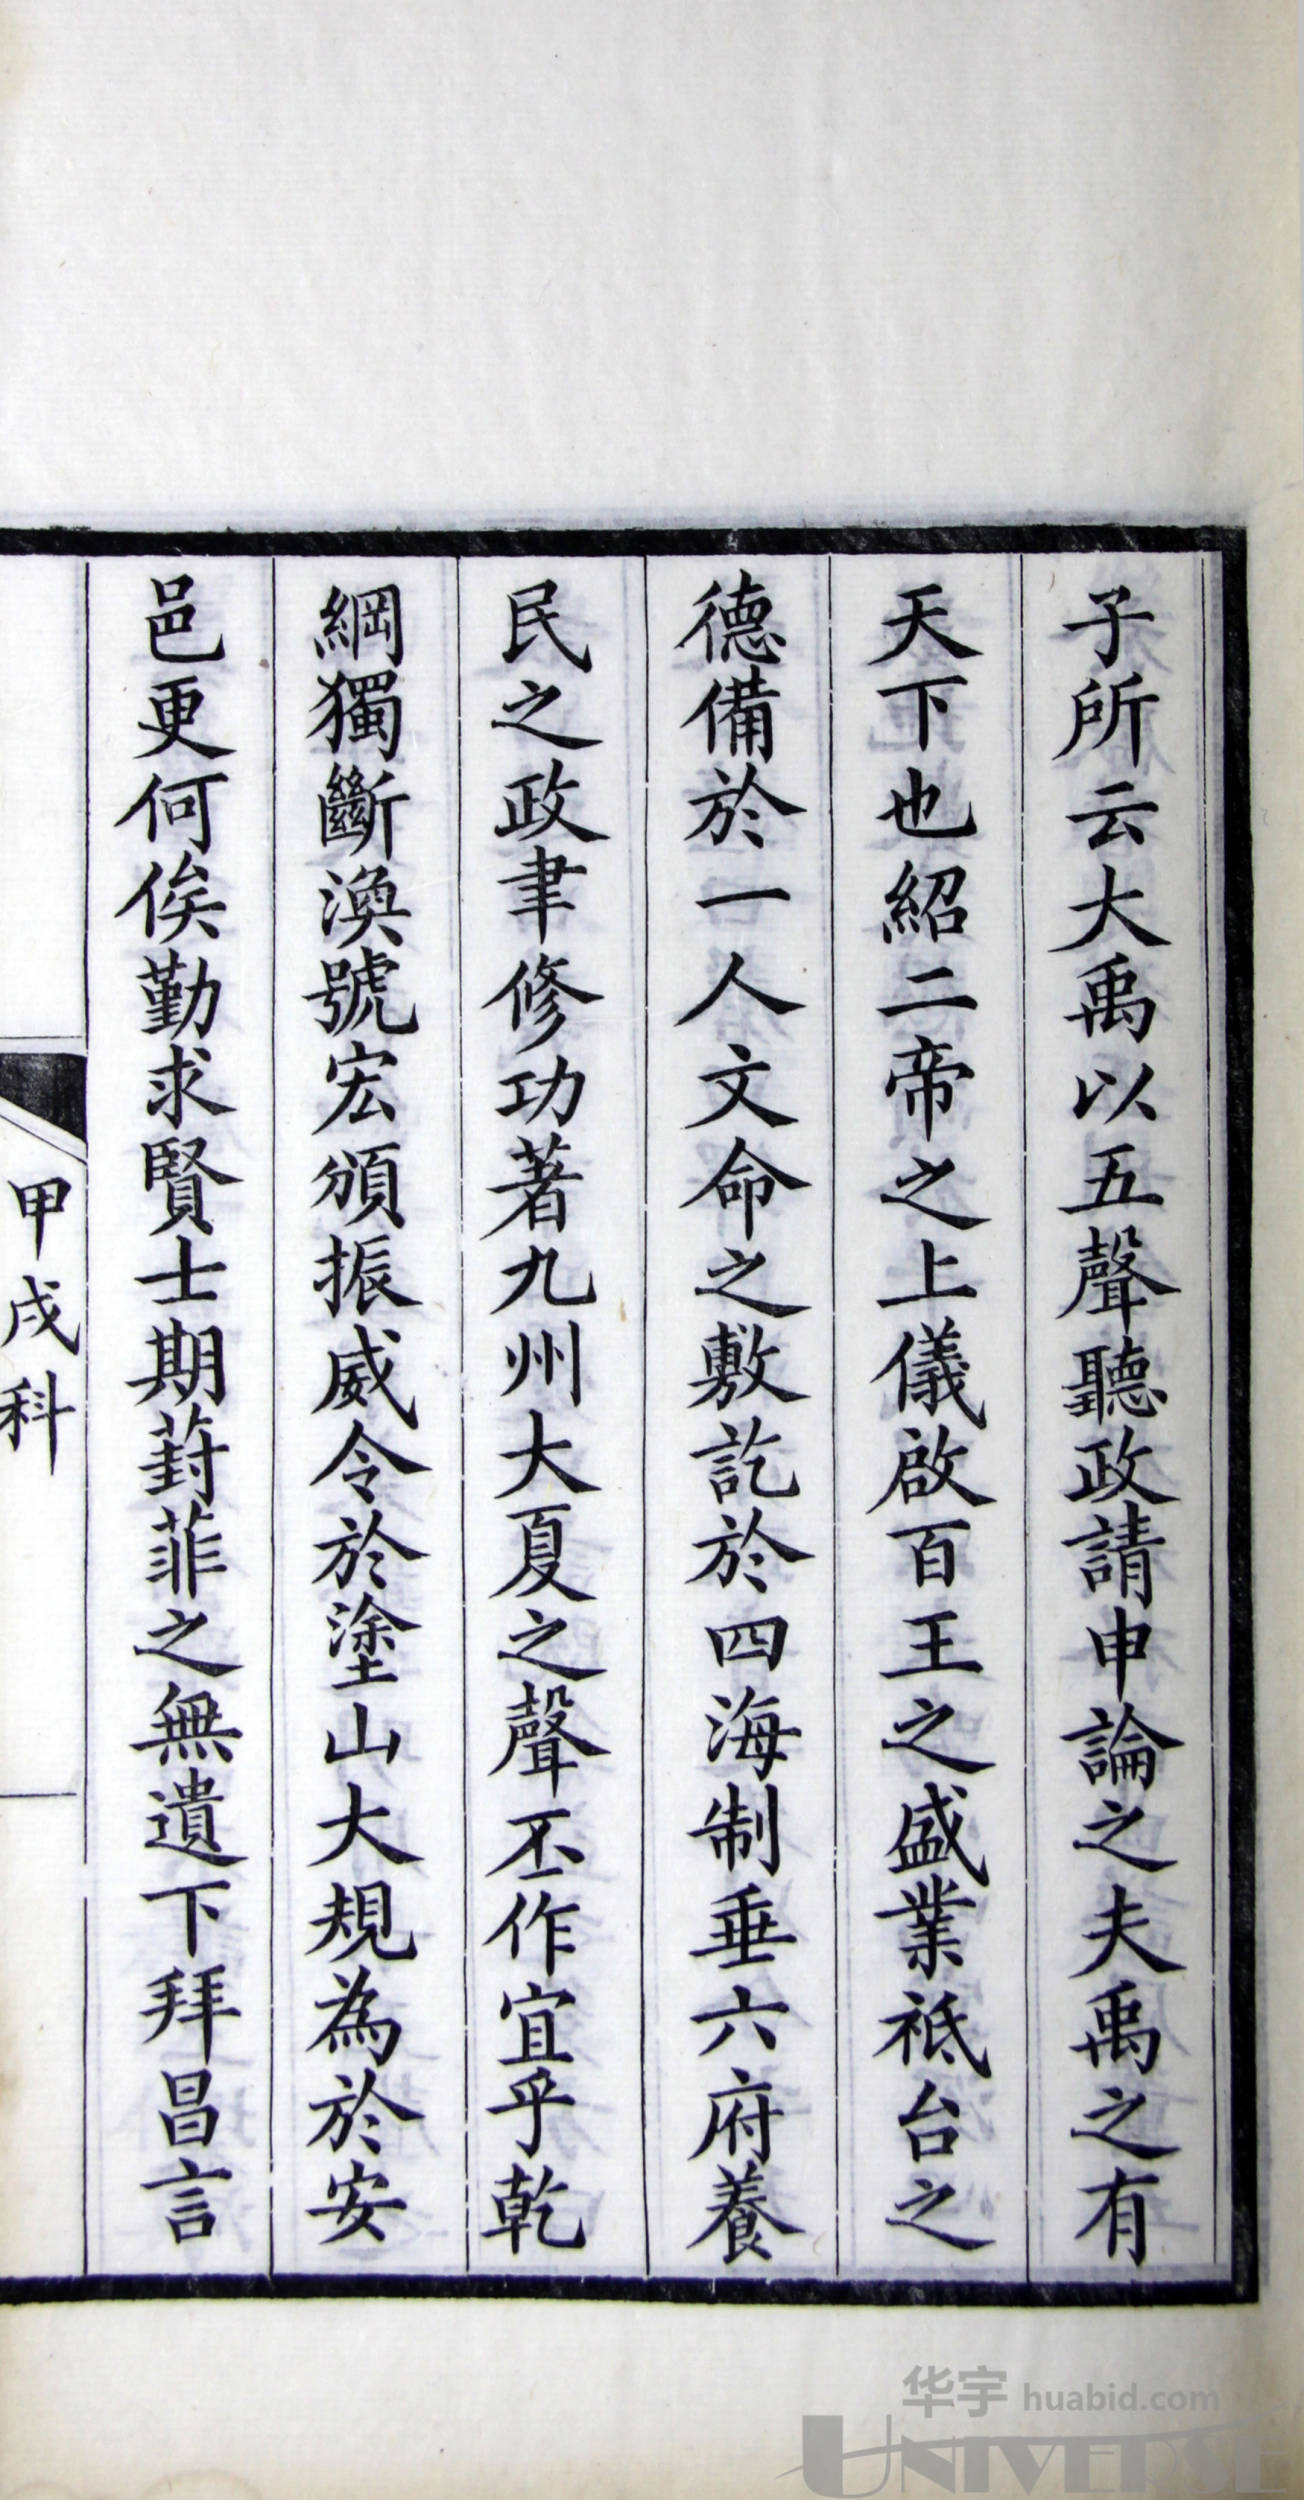 子所云大禹以五聲聽政請申論之夫禹之有
天下也紹二帝之上儀啟百王之盛業祗台之
德備於一人文命之敷訖於四海制垂六府養
民之政聿修功著九州大夏之聲丕作宜乎乾
綱獨斷渙號宏頒振威令於塗山大規為於安
邑更何俟勤求賢士期葑菲之無遺下拜昌言
甲戌科
华宇 huabid.com
UNIVERSE